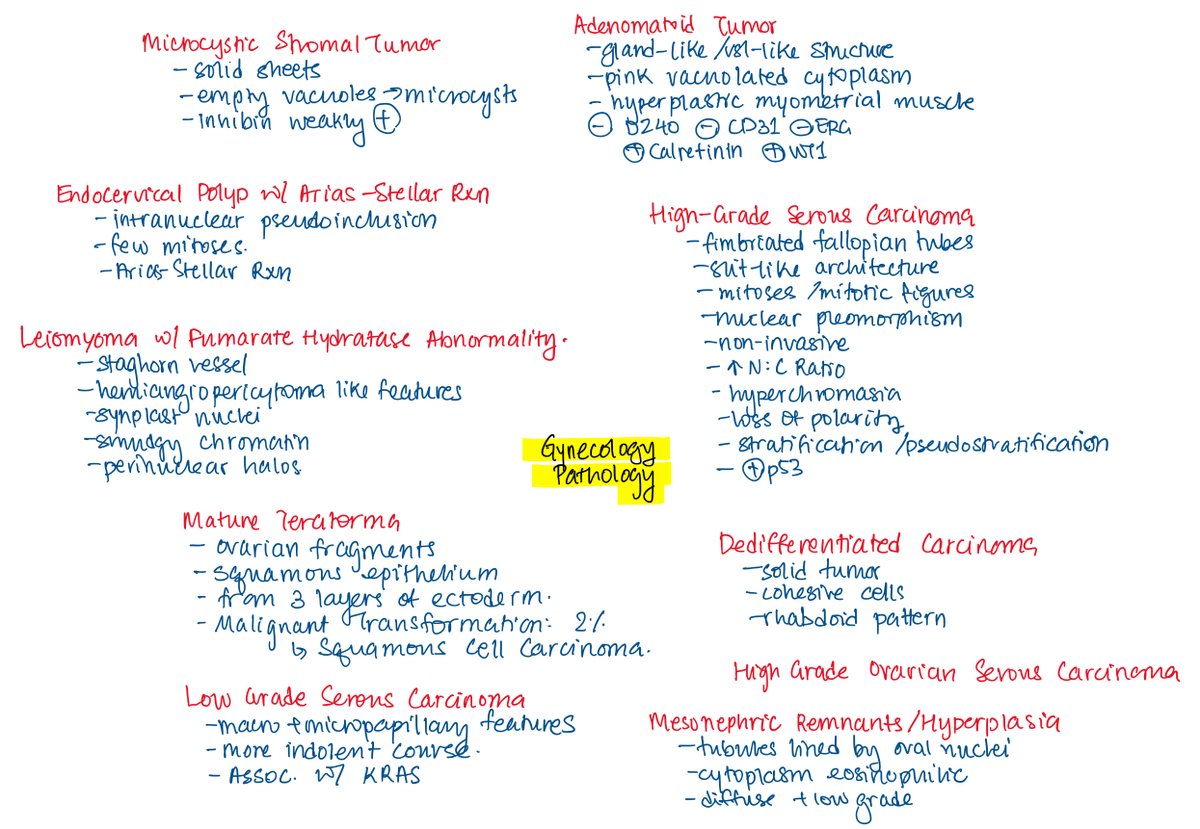 Microcystic Stromal Tumor
- solid sheets
- empty vacuoles → microcysts
- inhibin weakly ⊕
Adenomatoid Tumor
- gland-like /vsl-like structure
- pink vacuolated cytoplasm
- hyperplastic myometrial muscle
⊖ D240 ⊖ CD31 ⊖ ERG
⊕ Calretinin ⊕ WT1
Endocervical Polyp w/ Arias-Stellar Rxn
- intranuclear pseudoinclusion
- few mitoses.
- Arias-Stellar Rxn
High-Grade Serous Carcinoma
- fimbriated fallopian tubes
- slit-like architecture
- mitoses /mitotic figures
- nuclear pleomorphism
- non-invasive
- ↑ N:C Ratio
- hyperchromasia
- loss of polarity
- stratification /pseudostratification
- ⊕ p53
Leiomyoma w/ Fumarate Hydratase Abnormality.
- staghorn vessel
- hemiangiopericytoma like features
- synplast nuclei
- smudgy chromatin
- perinuclear halos
Gynecology
Pathology
Mature Teratorma
- ovarian fragments
- squamous epithelium
- from 3 layers of ectoderm.
- Malignant Transformation: 2%
↳ Squamous Cell Carcinoma.
Dedifferentiated Carcinoma
- solid tumor
- cohesive cells
- rhabdoid pattern
High Grade Ovarian Serous Carcinoma
Low Grade Serous Carcinoma
- macro + micropapillary features
- more indolent course.
- Assoc. w/ KRAS
Mesonephric Remnants/Hyperplasia
- tubules lined by oval nuclei
- cytoplasm eosinophilic
- diffuse + low grade